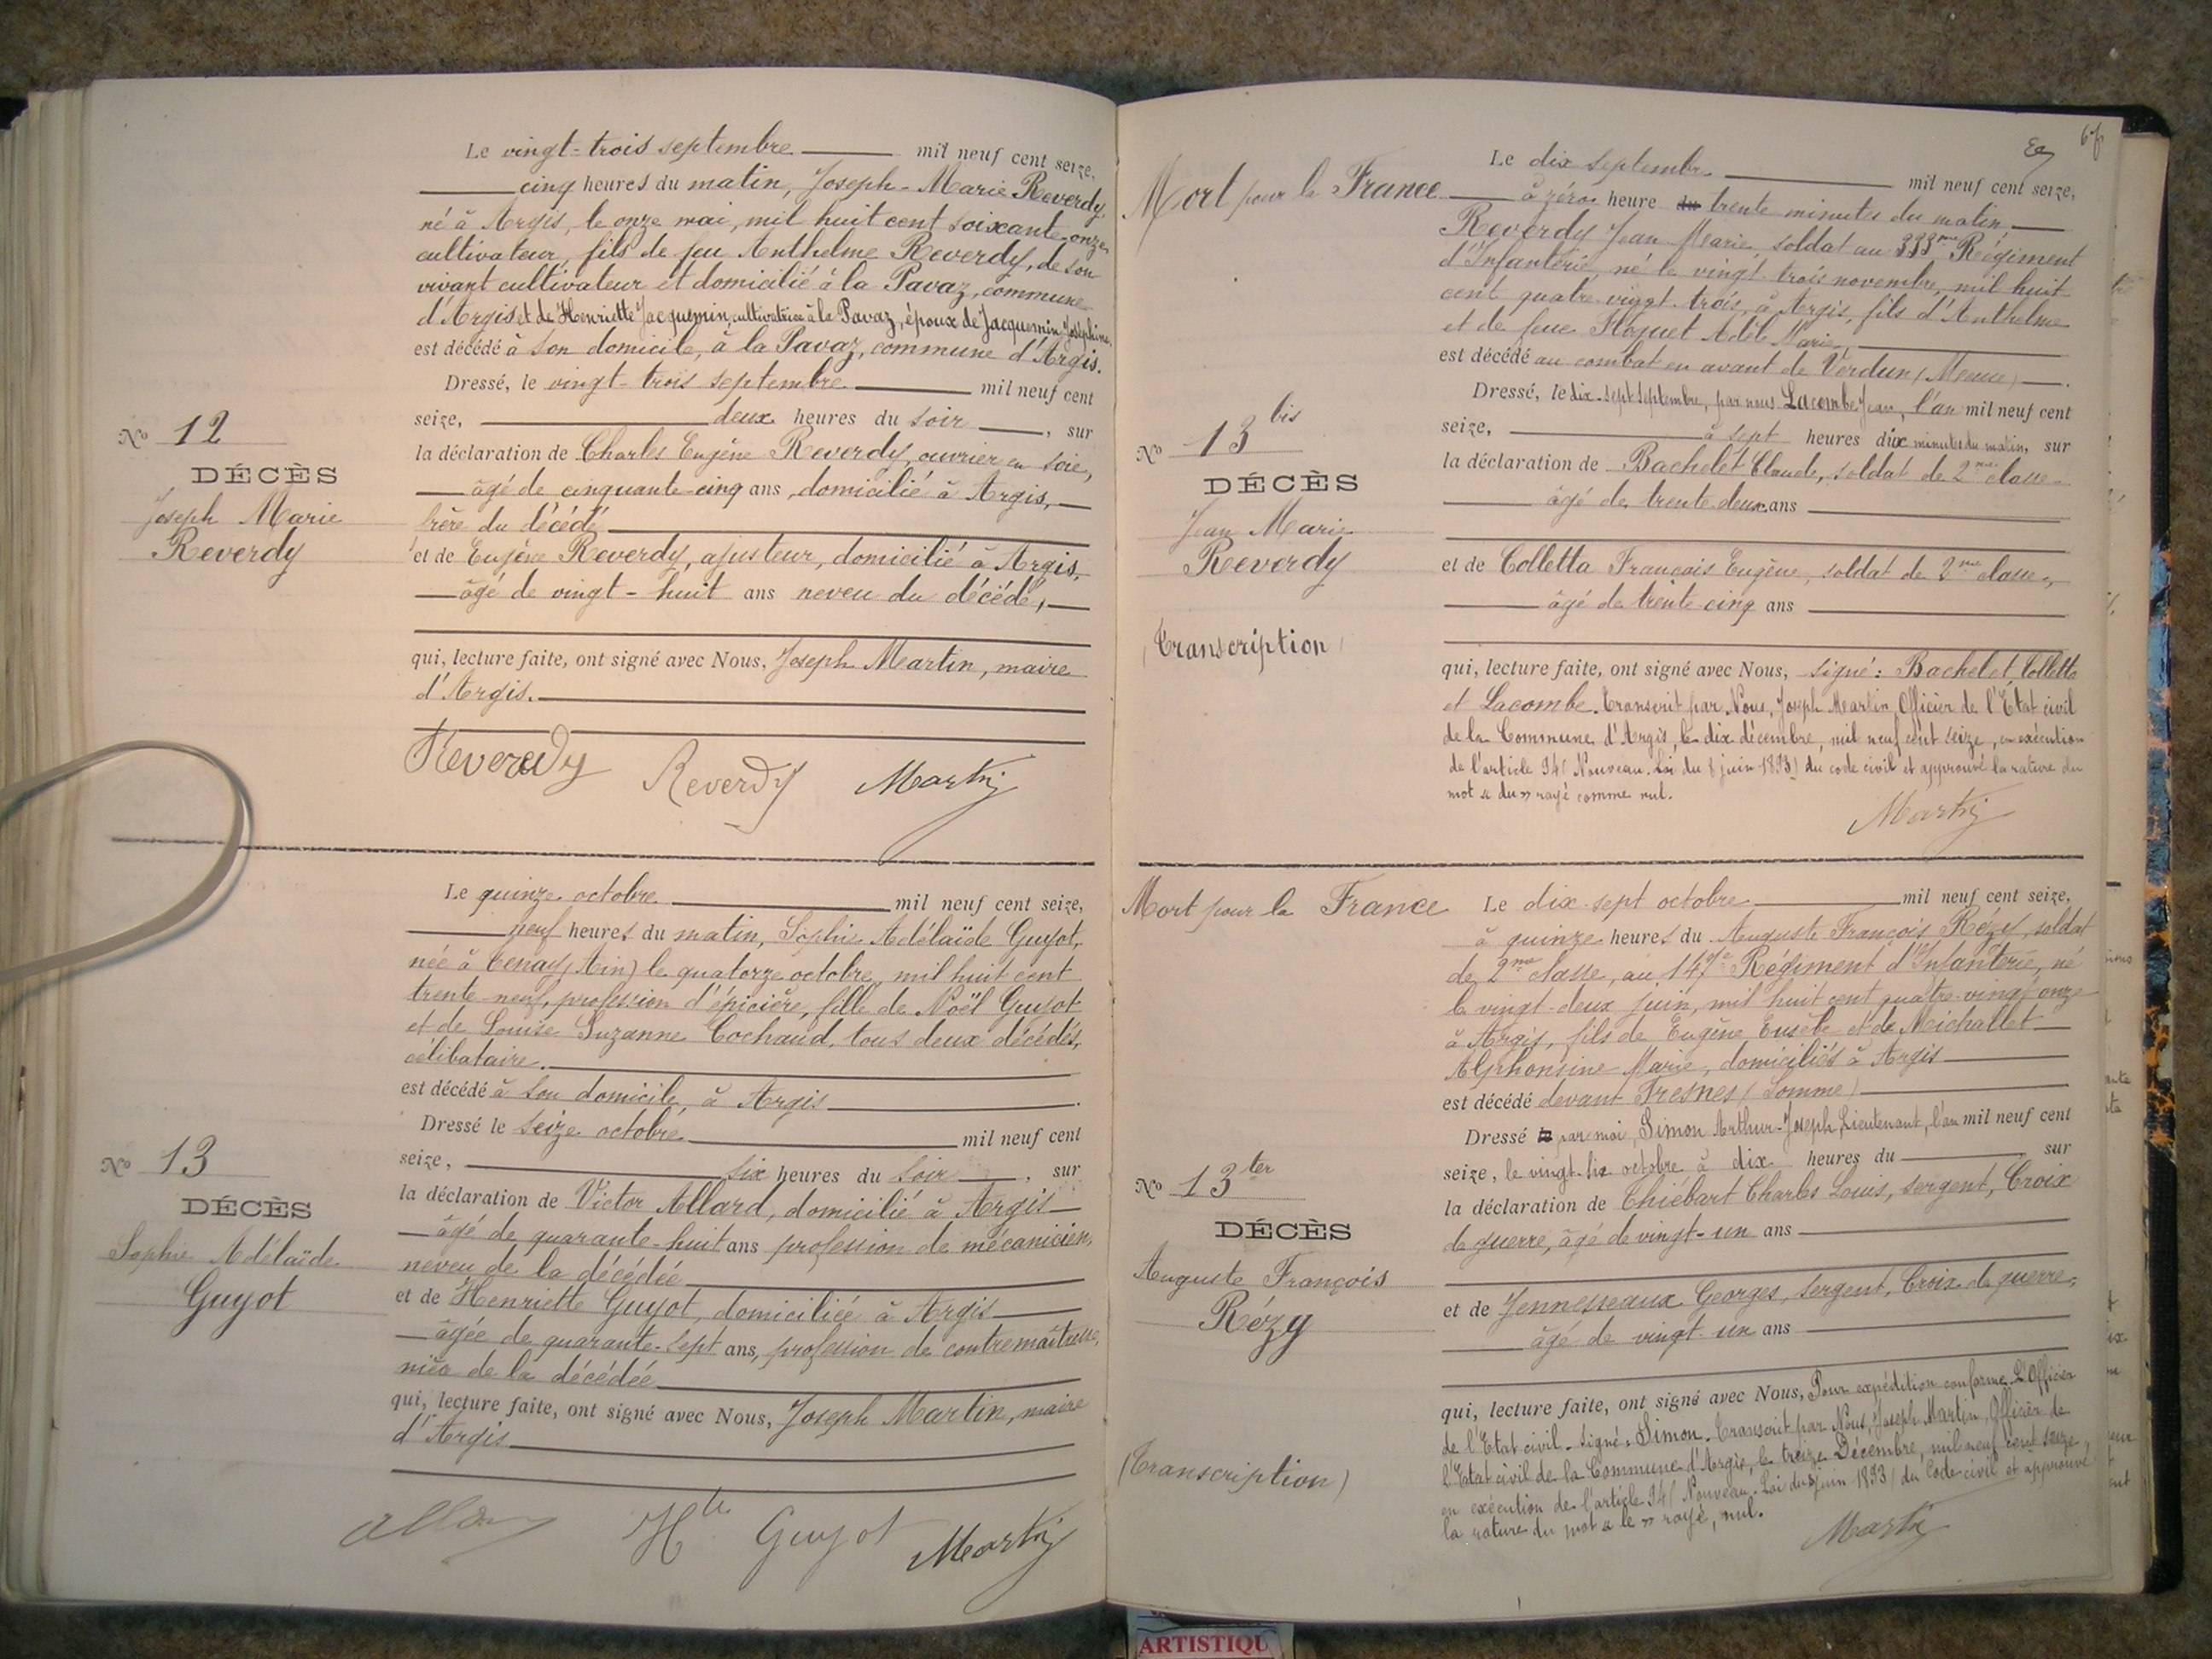 Le vingt-trois septembre mil neuf cent seize,
cinq heures du matin, Joseph-Marie Reverdy,
né à Argis, le onze mai, mil huit cent soixante-onze
cultivateur, fils de feu Anthelme Reverdy, de son
vivant cultivateur et domicilié à la Pavaz, commune
d'Argis et de Henriette Jacquemin, cultivatrice à la Pavaz, époux de Jacquemin Joséphine.
est décédé à son domicile, à la Pavaz, commune d'Argis.
Dressé, le vingt-trois septembre mil neuf cent
seize, deux heures du soir, sur
la déclaration de Charles Eugène Reverdy, ouvrier en soie,
âgé de cinquante-cinq ans, domicilié à Argis,
frère du décédé
et de Eugène Reverdy, ajusteur, domicilié à Argis,
âgé de vingt-huit ans neveu du décédé,
qui, lecture faite, ont signé avec Nous, Joseph Martin, maire
d'Argis.
Reverdy Reverdy Martin
No 12
DÉCÈS
Joseph Marie
Reverdy
Le quinze octobre mil neuf cent seize,
neuf heures du matin, Sophie Adélaïde Guyot,
née à Tenay (Ain) le quatorze octobre, mil huit cent
trente-neuf, profession d'épicière, fille de Noël Guyot
et de Louise Suzanne Cochaud, tous deux décédés,
célibataire.
est décédé à son domicile, à Argis.
Dressé le seize octobre mil neuf cent
seize, six heures du soir, sur
la déclaration de Victor Allard, domicilié à Argis
âgé de quarante-huit ans profession de mécanicien,
neveu de la décédée
et de Henriette Guyot, domiciliée à Argis
âgée de quarante-sept ans, profession de contremaîtresse,
nièce de la décédée
qui, lecture faite, ont signé avec Nous, Joseph Martin, maire
d'Argis
Allard Hte Guyot Martin
No 13
DÉCÈS
Sophie Adélaïde
Guyot
67
Mort pour la France
Le dix septembre mil neuf cent seize,
à zéro heure du trente minutes du matin,
Reverdy Jean Marie, soldat au 333me Régiment
d'Infanterie, né le vingt-trois novembre, mil huit
cent quatre-vingt-trois, à Argis, fils d'Anthelme
et de feue Hoquet Adèle Marie,
est décédé au combat en avant de Verdun (Meuse).
Dressé, le dix-sept septembre, par nous Lacombe Jean, l'an mil neuf cent
seize, à sept heures dix minutes du matin, sur
la déclaration de Bachelet Claude, soldat de 2me classe
âgé de trente deux ans
et de Colletta François Eugène, soldat de 2me classe,
âgé de trente-cinq ans
qui, lecture faite, ont signé avec Nous, signé: Bachelet, Colletta
et Lacombe. Transcrit par Nous, Joseph Martin, Officier de l'Etat civil
de la Commune d'Argis, le dix décembre, mil neuf cent seize, en exécution
de l'article 94 (Nouveau. Loi du 8 juin 1893) du code civil et approuvé la rature du
mot « du » rayé comme nul.
Martin
No 13 bis
DÉCÈS
Jean Marie
Reverdy
(Transcription)
Mort pour la France
Le dix-sept octobre mil neuf cent seize,
à quinze heures du Auguste François Rézy, soldat
de 2me classe, au 147e Régiment d'Infanterie, né
le vingt-deux juin, mil huit cent quatre-vingt onze
à Argis, fils de Eugène Eusèbe et de Michallet
Alphonsine-Marie, domiciliés à Argis
est décédé devant Fresnes (Somme)
Dressé le par moi, Simon Arthur-Joseph, Lieutenant, l'an mil neuf cent
seize, le vingt-six octobre à dix heures du sur
la déclaration de Thiébart Charles Louis, sergent, Croix
de guerre, âgé de vingt-un ans
et de Jennesseaux Georges, sergent, Croix de guerre,
âgé de vingt-un ans
qui, lecture faite, ont signé avec Nous, Pour expédition conforme. L'Officier
de l'Etat civil. Signé: Simon. Transcrit par Nous, Joseph Martin, Officier de
l'Etat civil de la Commune d'Argis, le treize Décembre, mil neuf cent seize,
en exécution de l'article 94 (Nouveau. Loi du 8 juin 1893) du Code civil et approuvé
la rature du mot « le » rayé, nul.
Martin
No 13 ter
DÉCÈS
Auguste François
Rézy
(Transcription)
ARTISTIQU